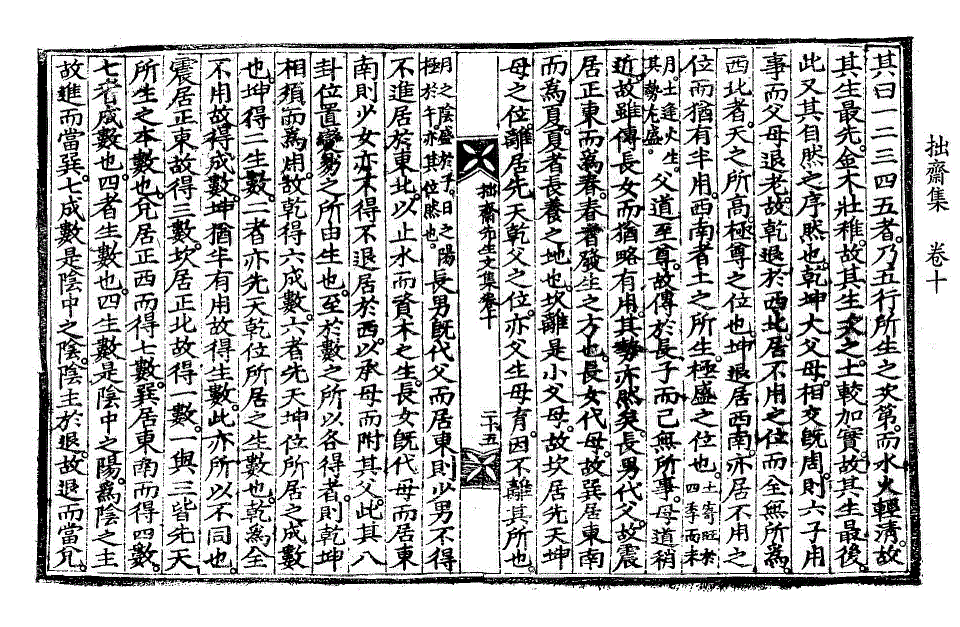 拙齋集　卷十
其曰一二三四五者乃五行所生之次第而水火輕清故
其生最先金木壯稚故其生次之土較加實故其生最後
此又其自然之序然也乾坤大父母相交旣周則六子用
事而父母退老故乾退於西北居不用之位而全無所爲
西北者天之所高極尊之位也坤退居西南亦居不用之
位而猶有半用西南者土之所生極盛之位也土寄旺於四季而未
月土逢火生其勢尤盛父道至尊故傳於長子而己無所事母道稍
近故雖傳長女而猶略有用其勢亦然矣長男代父故震
居正東而爲春春者發生之方也長女代母故巽居東南
而爲夏夏者長養之地也坎離是小父母故坎居先天坤
母之位離居先天乾父之位亦父生母育因不離其所也
拙齋先生文集卷十　二十五
月之陰盛於子日之陽極於午亦其位然也長男旣代父而居東則少男不得
不進居於東北以止水而資木之生長女旣代母而居東
南則少女亦不得不退居於西以承母而附其父此其八
卦位置變易之所由生也至於數之所以各得者則乾坤
相須而爲用故乾得六成數六者先天坤位所居之成數
也坤得二生數二者亦先天乾位所居之生數也乾爲全
不用故得成數坤猶半有用故得生數此亦所以不同也
震居正東故得三數坎居正北故得一數一與三皆先天
所生之本數也兌居正西而得七數巽居東南而得四數
七者成數也四者生數也四生數是陰中之陽爲陰之主
故進而當巽七成數是陰中之陰陰主於退故退而當兌